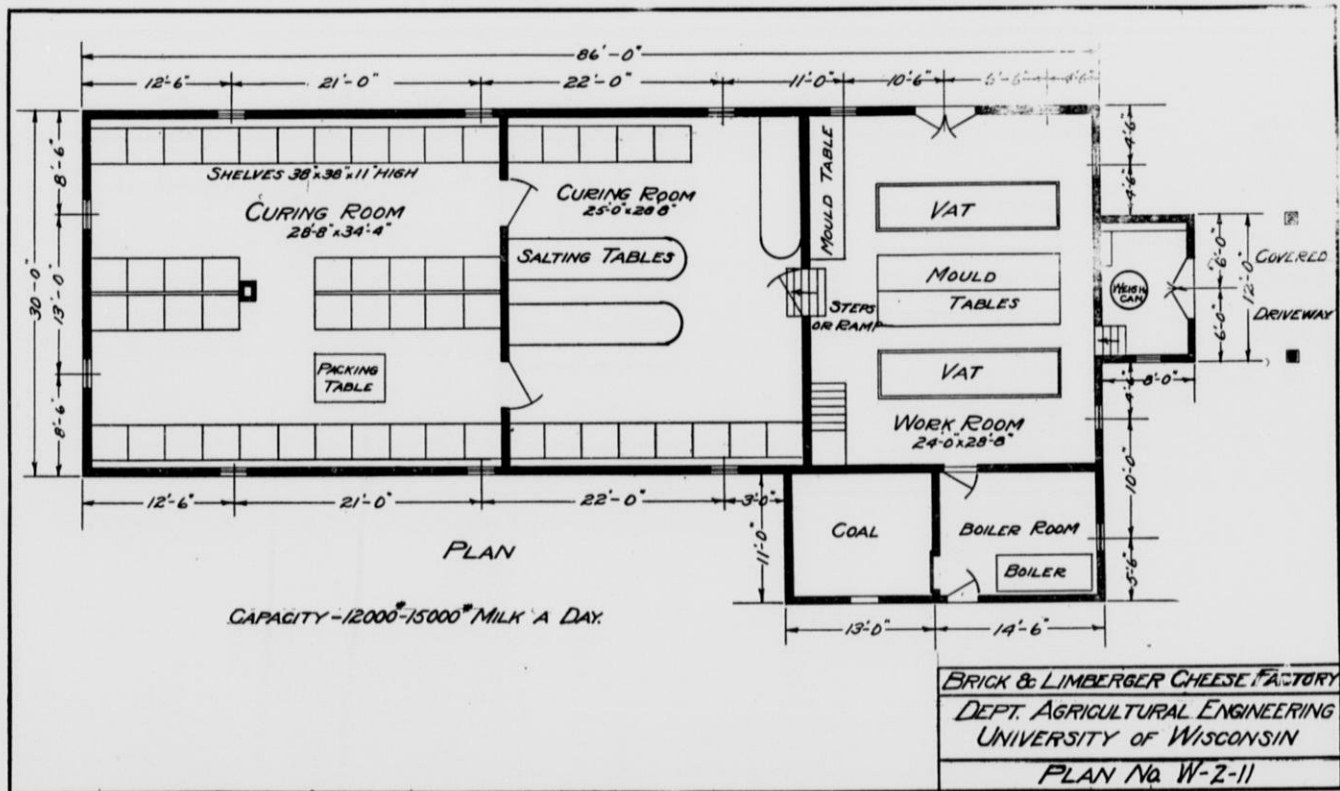 86'-0"
12'-6" 21'-0" 22'-0" 11'-0" 10'-6" 5'-6" 4'-6"
30'-0"
8'-6"
13'-0"
8'-6"
SHELVES 38"x38"x11" HIGH
CURING ROOM
28'-8"x34'-4"
PACKING
TABLE
CURING ROOM
25'-0"x28'8"
SALTING TABLES
MOULD TABLE
STEPS
OR RAMP
VAT
MOULD
TABLES
VAT
WORK ROOM
24'-0"x28'-8"
4'6"
4'6"
WEIGH
CAN
6'-0"
6'-0"
12'-0"
COVERED
DRIVEWAY
8'-0"
4'6"
10'-0"
5'-6"
12'-6" 21'-0" 22'-0" 3'-0"
11'-0"
COAL
BOILER ROOM
BOILER
13'-0" 14'-6"
PLAN
CAPACITY-12000#-15000# MILK A DAY.
BRICK & LIMBERGER CHEESE FACTORY
DEPT. AGRICULTURAL ENGINEERING
UNIVERSITY OF WISCONSIN
PLAN NO. W-2-11